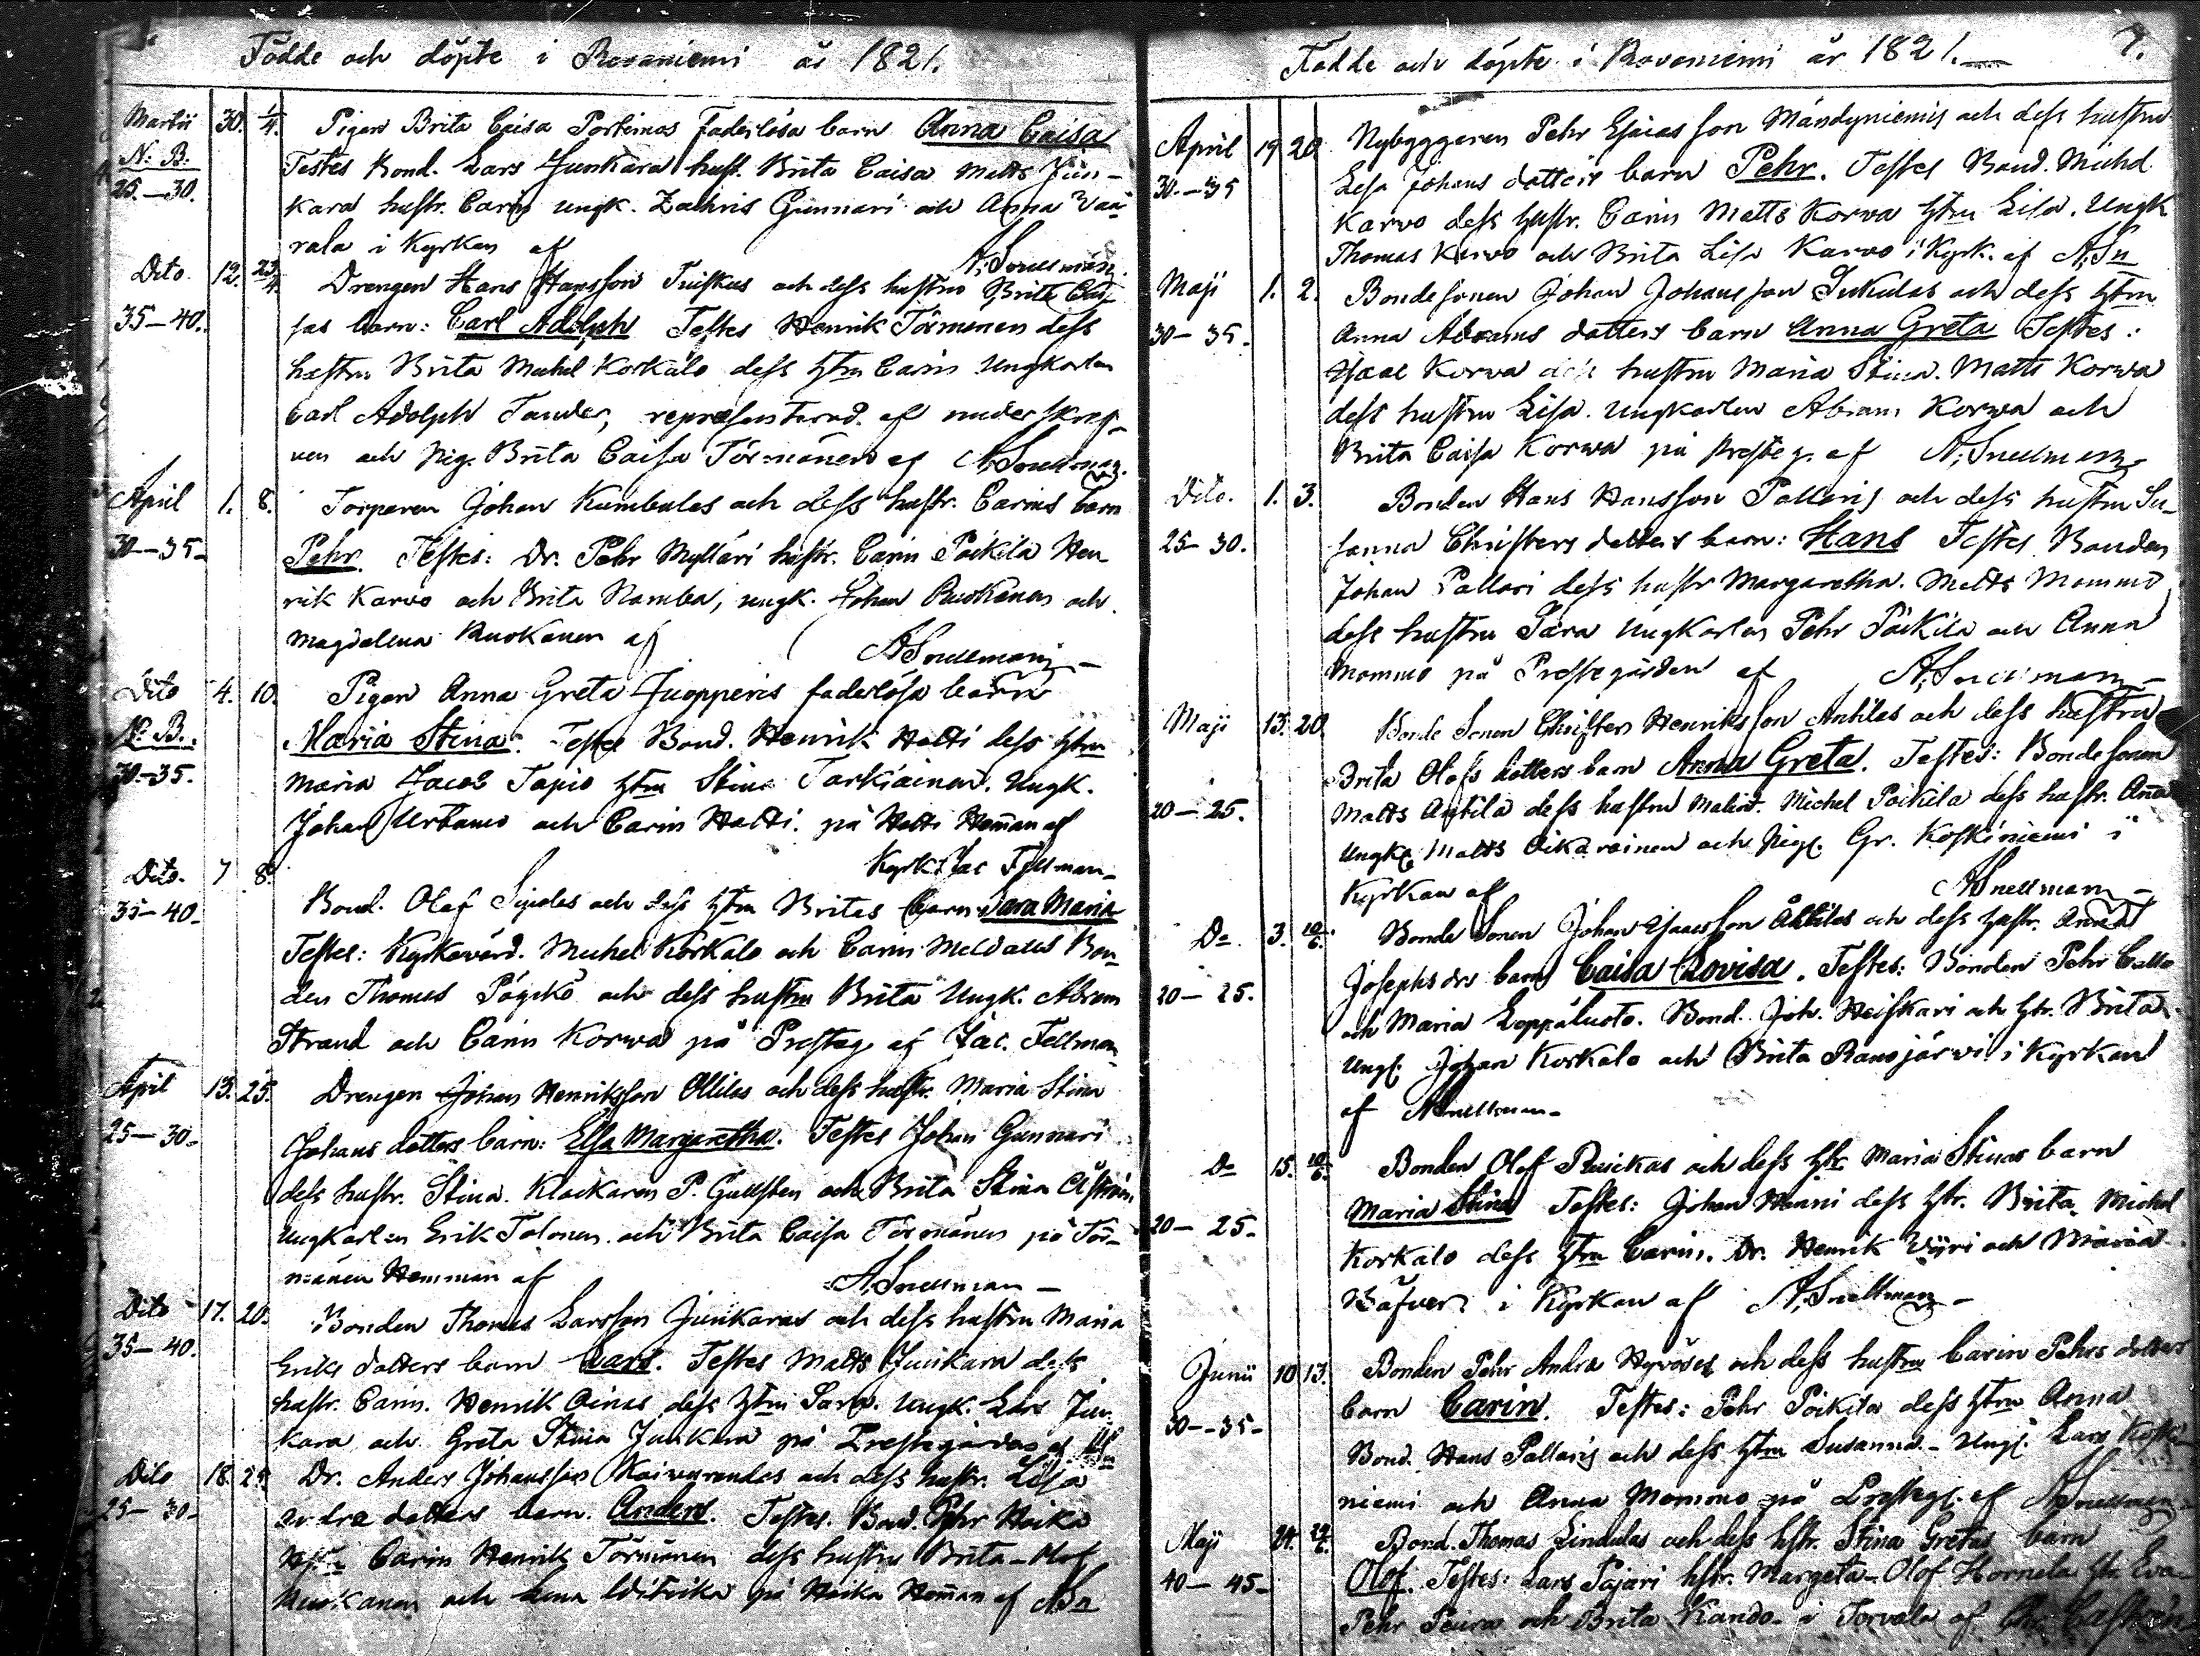 Födde och döpte i Rovaniemi år 1821.
Martii 30. 1/4. Pigan Brita Caisa Portimas faderlösa barn Anna Caisa
N: B: Testes Bond. Lars Junkara hust. Brita Caisa Matts Jun-
25.—30. kara hustr. Carin ungk. Zachris Gunnari och Anna Vaa-
rala i Kyrkan af A. Snellman
Dito. 12. 23/4. Drengen Hans Hansson Tuiskus och dess hustru Brita Cai-
35—40. sas barn: Carl Adolph Testes Henrik Törmänen dess
hustru Brita Michel Korkalo dess hstru Carin Ungkarlen
Carl Adolph Tander, representerad af underskref-
ven och Pig. Brita Caisa Törmänen af A. Snellman.
April 1. 8. Torparen Johan Kumbulas och dess hustr. Carins barn
30—35. Pehr. Testes: Dr. Pehr Mylläri hustr. Carin Poikila Hen
rik Karvo och Brita Ramba, ungk. Johan Ruokanen och
Magdalena Ruokanen af A Snellman
Dito 4. 10. Pigan Anna Greta Juopperis faderlösa barn
N: B. Maria Stina. Testes Bond. Henrik Hatti dess hstru
30.—35. Maria Jacob Tapio hstru Stina Tarkiainen. Ungk.
Johan Urbanus och Carin Hatti. på Hatti Heman af
Jac Fellman
Dito. 7 8. Bond. Olof Sipolas och dess hstru Britas barn Sara Maria
35—40. Testes: Kyrkovärd. Michel Korkalo och Carin Bon-
den Thomas Pöykkö och dess hustru Brita Ungk. Abram
Strand och Carin Korwa på Prosteg af Jac. Fellman
April 13. 25. Drengen Johan Henriksson Ollilas och dess hustr. Maria Stina
25—30. Johans dotters barn: Elsa Margaretha. Testes Johan Gunnari
dess hustr. Stina. Klockaren P. Gullsten och Brita Stina Åström
Ungkarlen Erik Tolonen och Brita Caisa Törmänen på Tör-
mänen Hemman af A. Snellman
Dito 17. 20. Bonden Thomas Larsson Junkaras och dess hustru Maria
35—40. Eriks dotters barn Lars. Testes Matts Junkara dess
hustr. Carin. Henrik Oinas dess hstru Sara. Ungk. Lars Jun-
kara och Greta Stina Junkara på Prestegården af ASn
Dito 18. Dr. Anders Johansson Kaivurandas och dess hustr. Lisa
25—30. Andre dotters barn. Anders. Testes. Bond. Pehr Hoika
Carin Henrik Törmänen dess hustru Brita
och på Hoika Heman af ASn
Födde och döpte i Rovaniemi år 1821. 7.
April 19 20 Nybyggaren Pehr Esaias son Mändyniemis och dess hustru
30.—35 Lisa Johans dotters barn Pehr. Testes Bond. Michel
Karvo dess hustr. Carin Matts Korva hstru Lisa. Ungk
Thomas Karvo och Brita Lisa Karvo i Kyrk. af A, Sn
Maji 1. 2. Bondesonen Johan Johansson Sukulas och dess hstru
30—35. Anna Abrams dotters barn Anna Greta Testes:
Isaac Korva och hustru Maria Stina. Matts Korwa
dess hustru Lisa. Ungkarlen Abram Korwa och
Brita Caisa Korwa på Prosteg. af A, Snellman
Dito. 1. 3. Bonden Hans Hansson Pallaris och dess hustru Su-
25—30. sanna Christers dotters barn: Hans Testes Bonden
Johan Pallari dess hustr Margaretha. Matts Mommo
dess hustru Sara Ungkarlen Pehr Poikila och Anna
Mommo på Prestegården af A, Snellman
Maji 13. 20. Bonde Sonen Christer Henriksson Antilas och dess hustru
20—25. Brita Olofs dotters barn Anna Greta. Testes: Bondesonen
Matts Antila dess hustru Malin. Michel Poikila dess hustr. Anna
Ungk. Matts Oikarainen och Pig. Gr. Koskiniemi i
Kyrkan af A Snellman
Do 3. 10/6. Bonde Sonen Johan Isaacsson Åttilas och dess hustr. Anna
20—25. Josephs drs barn Caisa Lovisa. Testes: Bonden Pehr Callo
och Maria Loppäluoto. Bond. Joh. Heiskari och htr. Brita
Ungk. Johan Korkalo och Brita Raanojärvi i Kyrkan
af A Snellman
Do 15. 10/6. Bonden Olof Rusikas och dess htr Maria Stinas barn
20—25. Maria Stina Testes: Johan Hanni dess htr. Brita, Michel
Korkalo dess hstru Carin. Dr. Henrik Viiri och Maria
Bäfver i Kyrkan af A, Snellman
Junii 10 13. Bonden Pehr Andra Hyvöses och dess hustru Carin Pehrs dotters
30—35. barn Carin. Testes: Pehr Poikila dess hstru Anna
Bond. Hans Pallaris och dess hstru Susanna. Ungk. Lars Koski-
niemi och Anna Mommo på Prosteg. af A Snellman
Maji 24. Bond. Thomas Lindulas och dess hstr. Stina Gretas barn
40—45. Olof. Testes: Lars Pajari hstr. Margeta Olof Hornela hstr Eva
Pehr Peura och Brita Kando i Torvola af